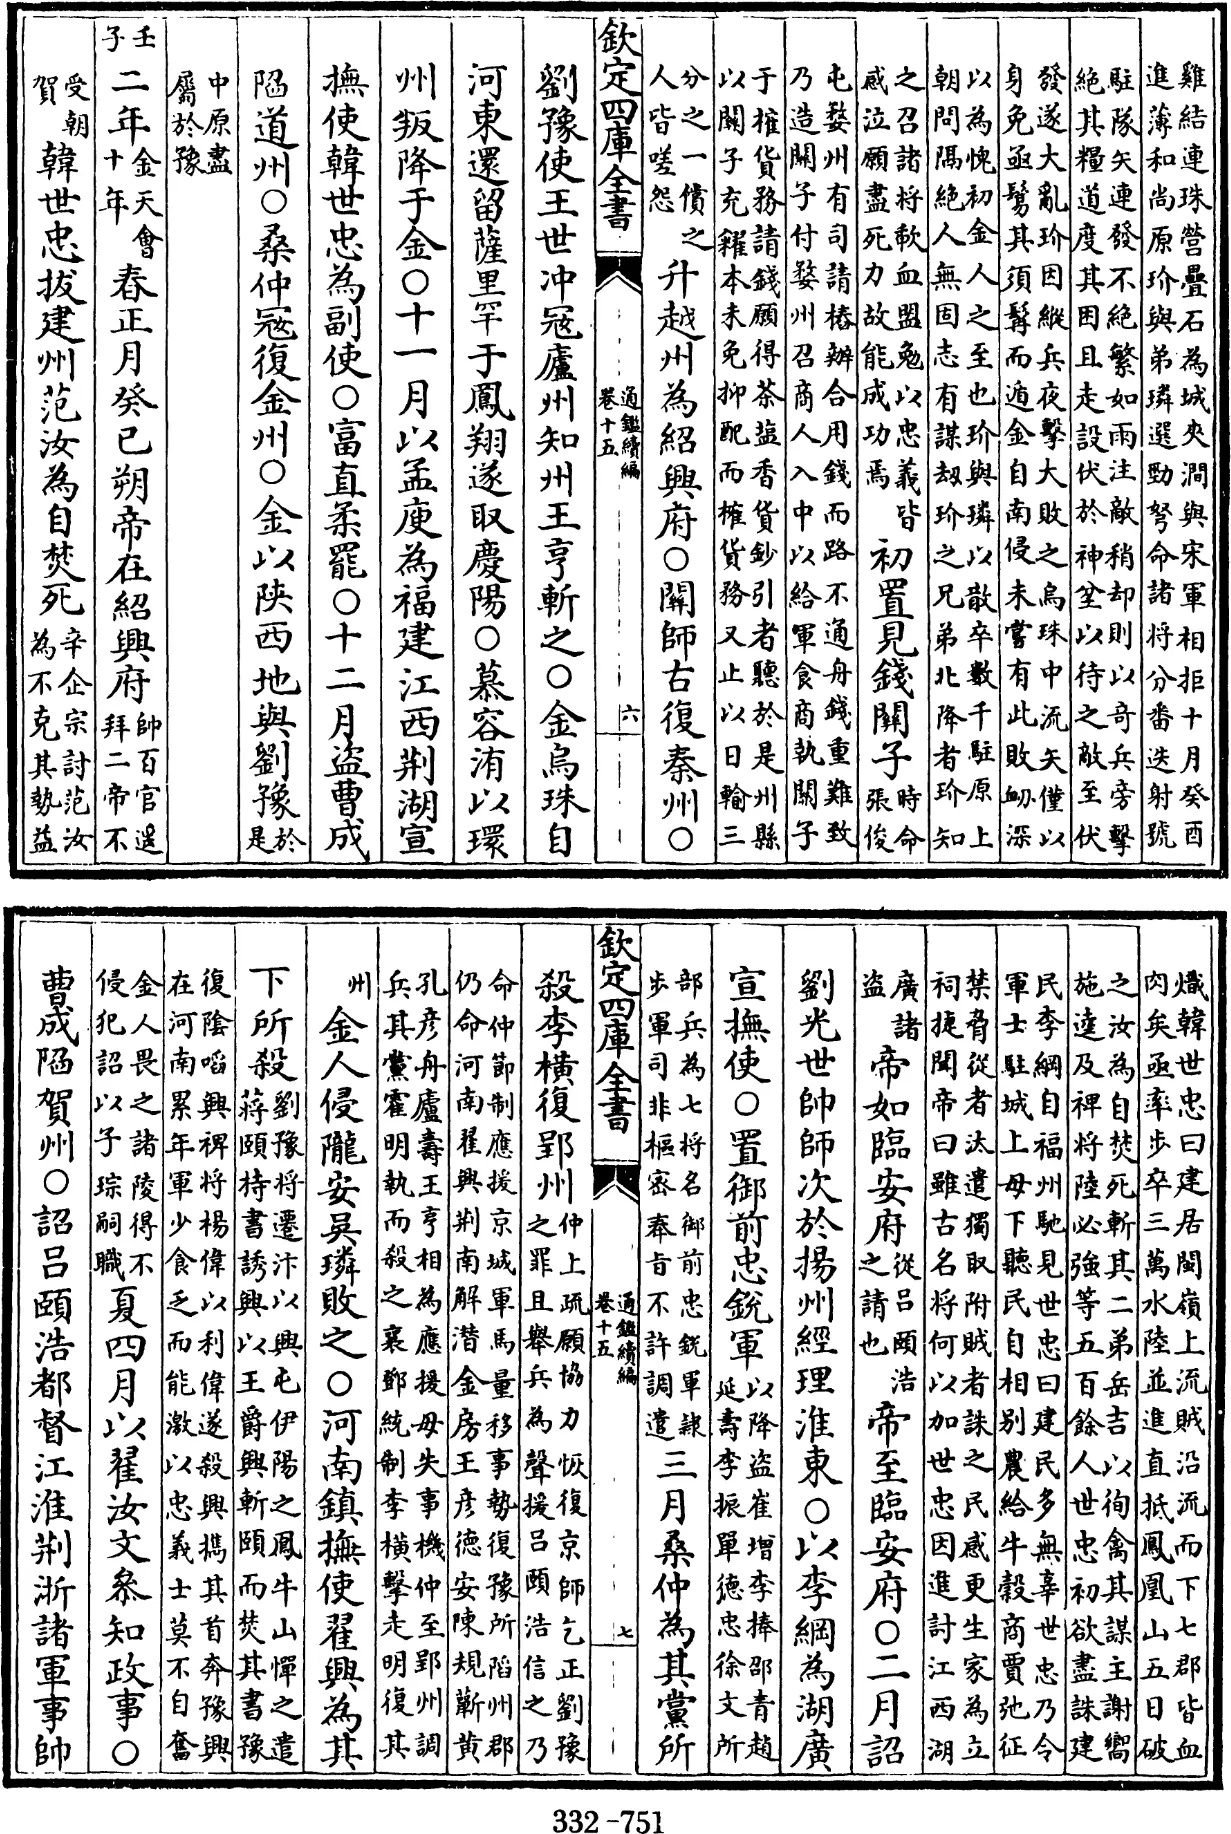 雞結連珠營疊石為城夾澗與宋軍相拒十月癸酉
進薄和尚原玠與弟璘選勁弩命諸将分番迭射號
駐隊矢連發不絶繁如雨注敵稍却則以竒兵旁擊
絶其糧道度其困且走設伏於神坌以待之敵至伏
發遂大亂玠因縱兵夜擊大敗之烏珠中流矢僅以
身免亟鬄其須髯而遁金自南侵未嘗有此敗衂深
以為愧初金人之至也玠與璘以散卒數千駐原上
朝問隔絶人無固志有謀刼玠之兄弟北降者玠知
之召諸将歃血盟勉以忠義皆
感泣願盡死力故能成功焉
初置見錢關子
時命
張俊
屯婺州有司請樁辦合用錢而路不通舟錢重難致
乃造關子付婺州召商人入中以給軍食商執關子
于榷貨務請錢願得茶盐香貨鈔引者聽於是州縣
以關子充糴本未免抑配而榷貨務又止以日輸三
分之一償之
人皆嗟怨
升越州為紹興府○關師古復秦州○
欽定四庫全書
通鑑續編
卷十五
六
劉豫使王世冲冦廬州知州王亨斬之○金烏珠自
河東還留薩里罕于鳳翔遂取慶陽○慕容洧以環
州叛降于金○十一月以孟庾為福建江西荆湖宣
撫使韓世忠為副使○富直柔罷○十二月盗曹成
陷道州○桑仲冦復金州○金以陜西地與劉豫
於
是
中原盡
屬於豫
壬
子
二年
金天會
十年
春正月癸巳朔帝在紹興府
帥百官遥
拜二帝不
受朝
賀
韓世忠拔建州范汝為自焚死
辛企宗討范汝
為不克其勢益
熾韓世忠曰建居閩嶺上流賊沿流而下七郡皆血
肉矣亟率步卒三萬水陸並進直抵鳳凰山五日破
之汝為自焚死斬其二弟岳吉以徇禽其謀主謝嚮
施逵及裨将陸必強等五百餘人世忠初欲盡誅建
民李綱自福州馳見世忠曰建民多無辜世忠乃令
軍士駐城上毋下聽民自相别農給牛榖商賈弛征
禁脅從者汰遣獨取附賊者誅之民感更生家為立
祠捷聞帝曰雖古名将何以加世忠因進討江西湖
廣諸
盗
帝如臨安府
從呂頤浩
之請也
帝至臨安府○二月詔
劉光世帥師次於揚州經理淮東○以李綱為湖廣
宣撫使○置御前忠銳軍
以降盗崔增李捧邵青趙
延壽李振單德忠徐文所
部兵為七将名御前忠銳軍隷
步軍司非樞密奉㫖不許調遣
三月桑仲為其黨所
欽定四庫全書
通鑑續編
卷十五
七
殺李横復郢州
仲上疏願協力恢復京師乞正劉豫
之罪且舉兵為聲援呂頤浩信之乃
命仲節制應援京城軍馬量移事勢復豫所䧟州郡
仍命河南翟興荆南解潜金房王彦德安陳規蕲黄
孔彦舟廬壽王亨相為應援毋失事機仲至郢州調
兵其黨霍明執而殺之襄鄧統制李横擊走明復其
州
金人侵隴安吳璘敗之○河南鎮撫使翟興為其
下所殺
劉豫将遷汴以興屯伊陽之鳳牛山憚之遣
蔣頤持書誘興以王爵興斬頤而焚其書豫
復隂㗖興裨将楊偉以利偉遂殺興擕其首奔豫興
在河南累年軍少食乏而能激以忠義士莫不自奮
金人畏之諸陵得不
侵犯詔以子琮嗣職
夏四月以翟汝文叅知政事○
曹成陷賀州○詔呂頤浩都督江淮荆浙諸軍事帥
332-751